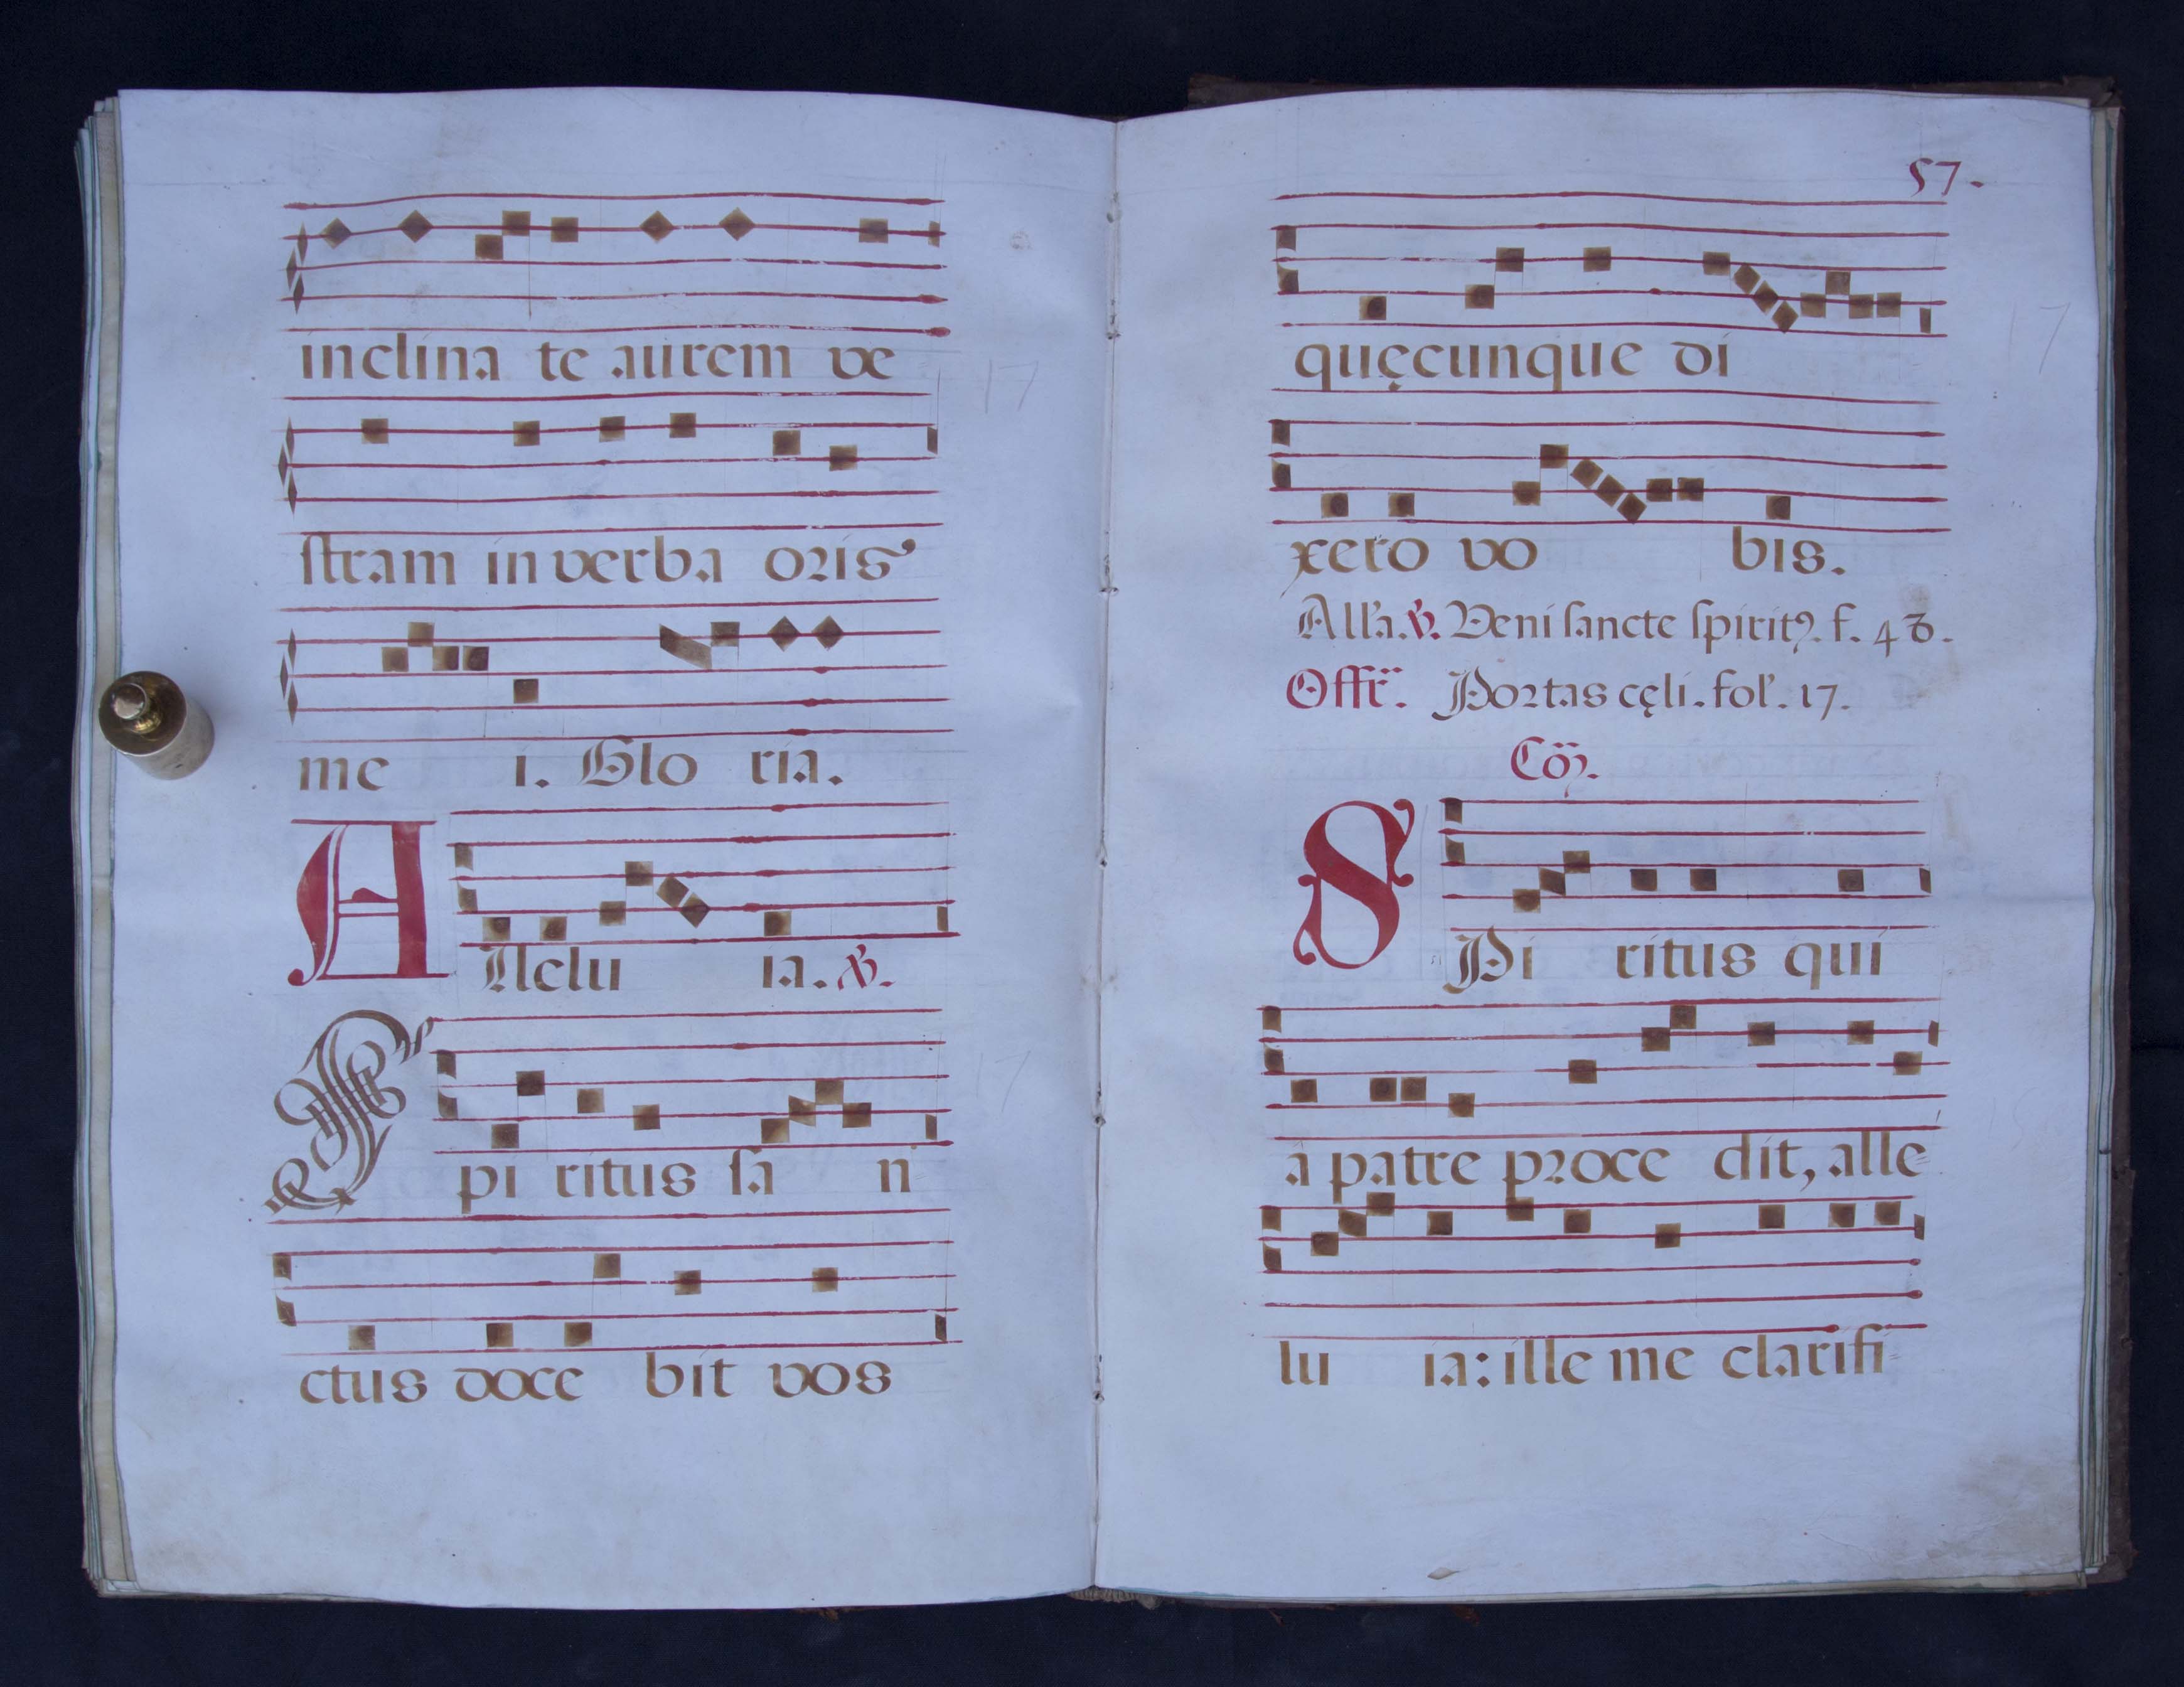 inclina te aurem ve
stram in verba oris
me i. Glo ria.
A
llelu ia. ℣.
S
pi ritus sa n
ctus doce bit vos
57.
17
quęcunque di
xero vo bis.
All'a. ℣. Veni sancte spiritꝰ. f. 48.
Offr̃. Portas cęli. fol'. 17.
Cõ.
S
Pi ritus qui
â patre proce dit, alle
lu ia: ille me clarifi